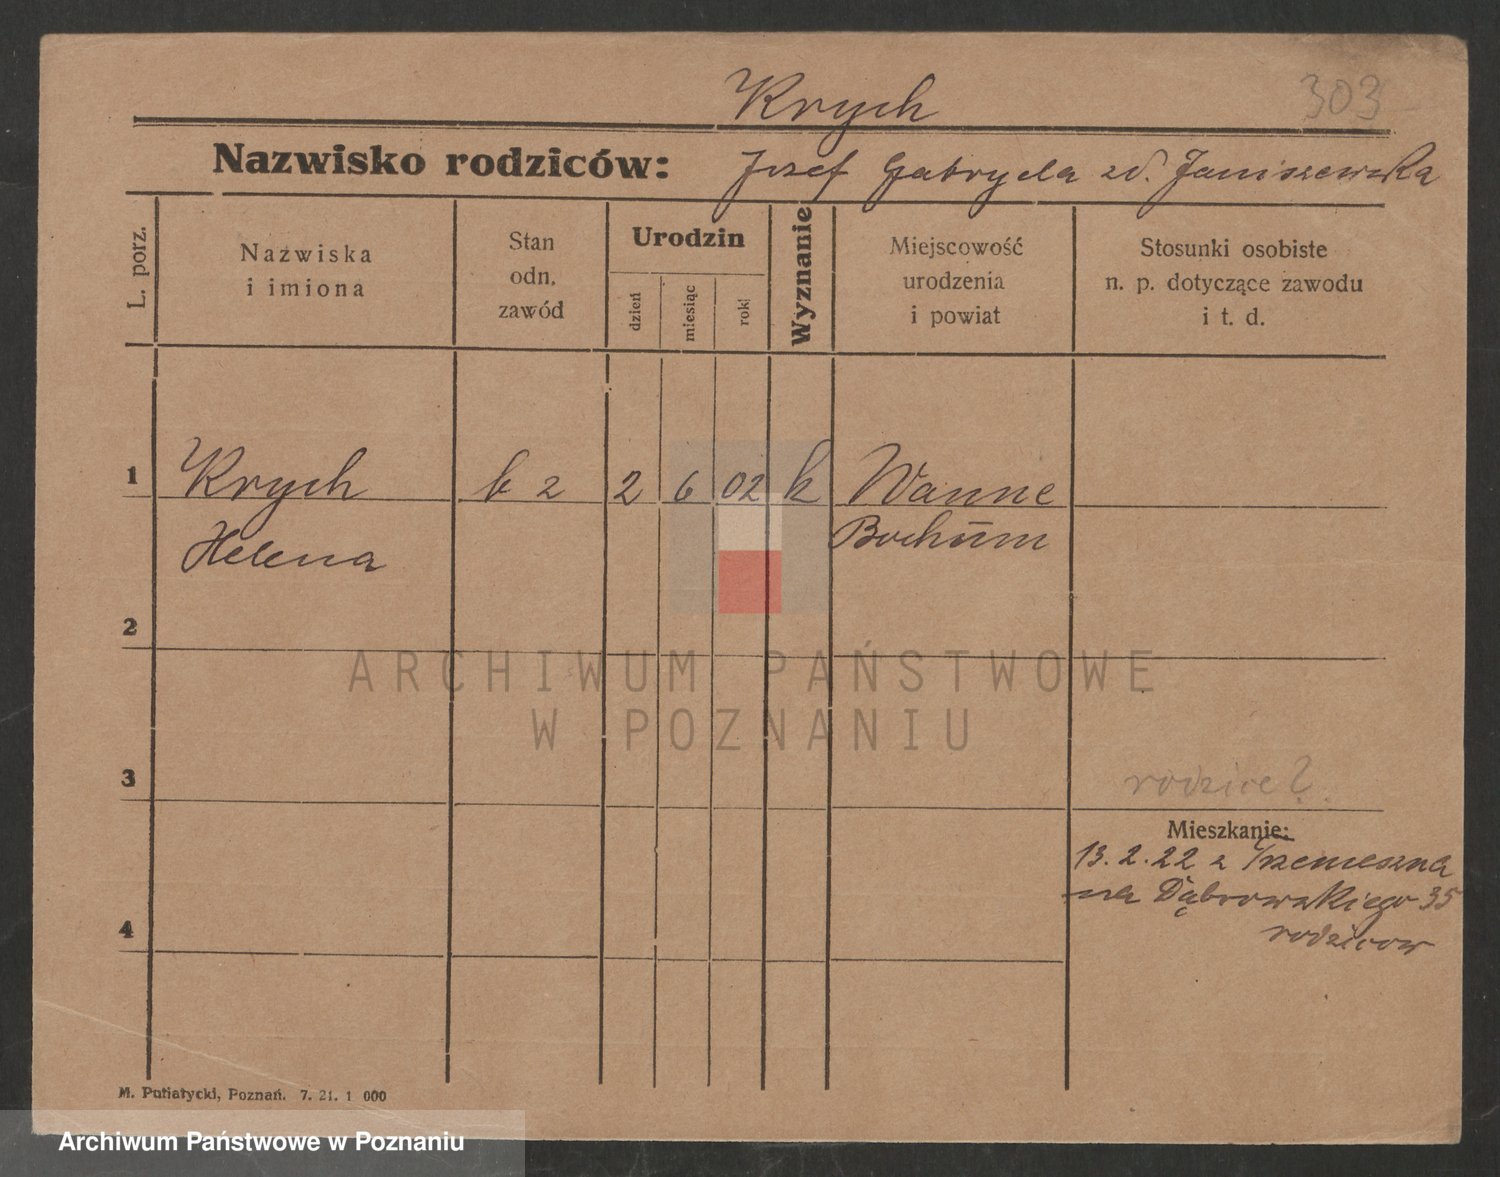 Krych
303
Nazwisko rodziców: Jozef Gabryela zd. Janiszewska
L. porz.
Nazwiska
i imiona
Stan
odn.
zawód
Urodzin
dzień
miesiąc
rok
Wyznanie
Miejscowość
urodzenia
i powiat
Stosunki osobiste
n. p. dotyczące zawodu
i t. d.
1 Krych b z 2 6 02 k Wanne
Helena Bochum
2
ARCHIWUM PAŃSTWOWE
W POZNANIU
3 rodzice?
Mieszkanie:
13. 2. 22 z Trzemeszna
na Dąbrowskiego 35
4 rodzicow
M. Putiatycki, Poznań. 7. 21. 1 000
Archiwum Państwowe w Poznaniu